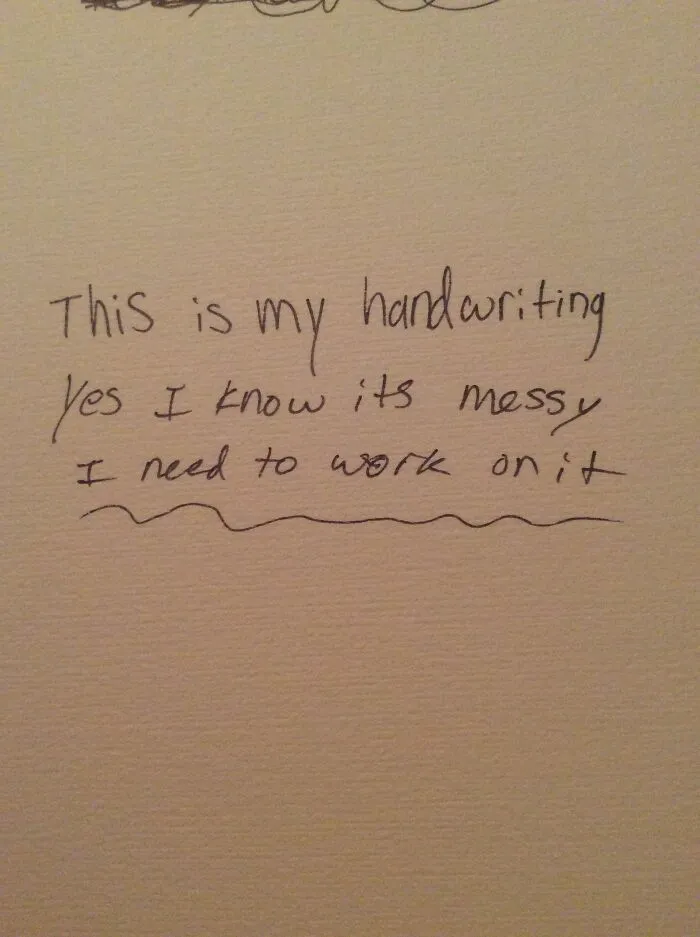 This is my handwriting
Yes I know its messy
I need to work on it